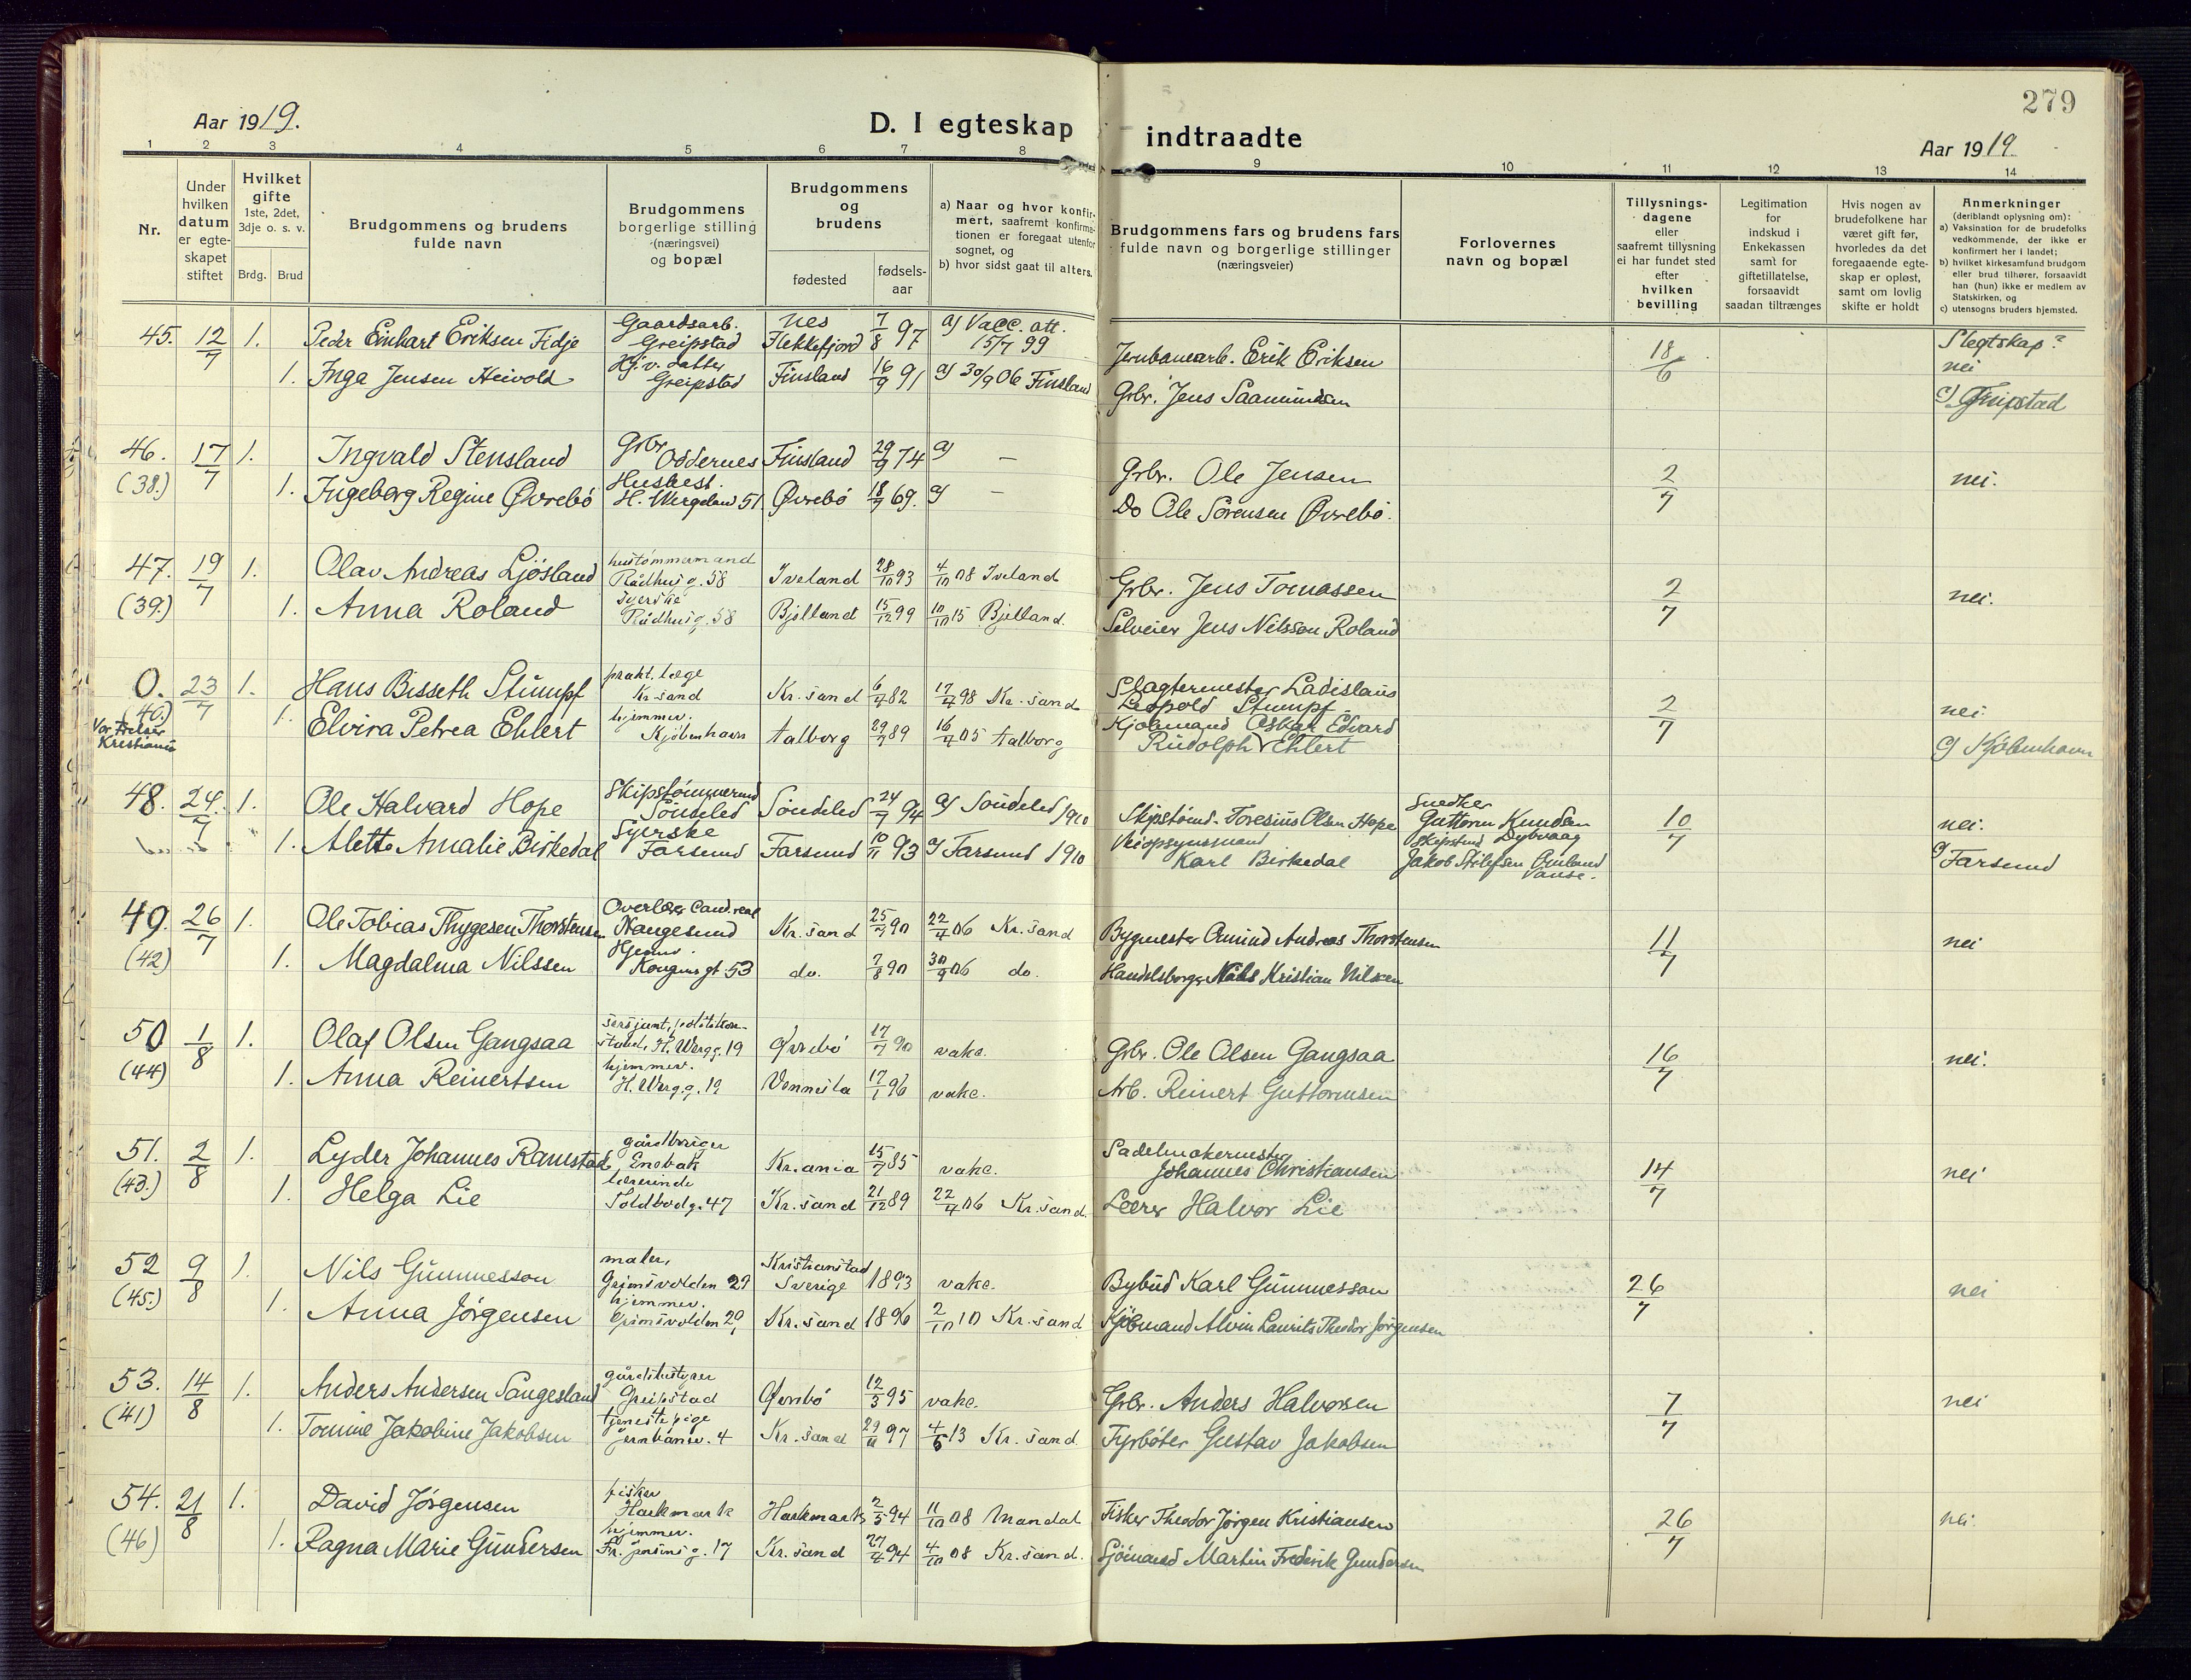 279
Aar 1919.
D. I egteskap indtraadte
Aar 1919.
1 2 3 4 5 6 7 8 9 10 11 12 13 14
Nr.
Under hvilken datum er egte-skapet stiftet
Hvilket gifte 1ste, 2det, 3dje o. s. v.
Brdg. Brud
Brudgommens og brudens fulde navn
Brudgommens borgerlige stilling (næringsvei) og bopæl
Brudgommens og brudens
fødested
fødsels-aar
a) Naar og hvor konfir-mert, saafremt konfirma-tionen er foregaat utenfor sognet, og
b) hvor sidst gaat til alters.
Brudgommens fars og brudens fars fulde navn og borgerlige stillinger (næringsveier)
Forlovernes navn og bopæl
Tillysnings-dagene eller saafremt tillysning ei har fundet sted efter hvilken bevilling
Legitimation for indskud i Enkekassen samt for giftetillatelse, forsaavidt saadan tiltrænges
Hvis nogen av brudefolkene har været gift før, hvorledes da det foregaaende egte-skap er opløst, samt om lovlig skifte er holdt
Anmerkninger (deriblandt oplysning om):
a) Vaksination for de brudefolks vedkommende, der ikke er konfirmert her i landet;
b) hvilket kirkesamfund brudgom eller brud tilhører, forsaavidt han (hun) ikke er medlem av Statskirken, og
c) utensogns bruders hjemsted.
45. 12/7 1. Peder Einhart Eriksen Fidje Gaardsarb. Greipstad Nes Flekkefjord 7/8 97 a) Vacc. att. 15/7 99 Jernbanearb. Erik Eriksen 18/6 Slegtskap? nei
1. Inga Jensen Heivold Hj.v. datter Greipstad Finsland 16/9 91 a) 30/9 06 Finsland Grbr. Jens Saamundsen c) Greipstad
46. 17/7 1. Ingvald Stensland Grbr Oddernes Finsland 29/9 74 a) — Grbr. Ole Jensen 2/7 nei.
(38.) 1. Ingeborg Regine Øvrebö Husbest. H. Wergeland 51 Øvrebö 18/9 69. a) — Do Ole Sörensen Øvrebö.
47. 19/7 1. Olav Andreas Ljösland hustömmermand Rådhusg. 58 Iveland 28/10 93 4/10 08 Iveland Grbr. Jens Tomassen 2/7 nei.
(39.) 1. Anna Roland syerske Rådhusg. 58 Bjelland 15/12 99 10/10 15 Bjelland. Selveier Jens Nilsson Roland
0. 23/7 1. Hans Bisseth Stumpf prakt. læge Kr.sand Kr.sand 6/4 82 17/4 98 Kr.sand Slagtermester Ladislaus Leopold Stumpf 2/7 nei.
(40.) Vor Frelser Kristiania 1. Elvira Petrea Ehlert hjemmev. Kjöbenhavn Aalborg 29/7 89 16/4 05 Aalborg Kjöbmand Oskar Edvard Rudolph Ehlert c) Kjöbenhavn
48. 24/7 1. Ole Halvard Hope Skipstömmermd Söndeled Söndeled 24/7 94 a) Söndeled 1910 Skipstömd. Toresius Olsen Hope Snedker Guttorm Knudsen Dybvaag 10/7 nei.
1. Alette Amalie Birkedal Syerske Farsund Farsund 10/11 93 a) Farsund 1910 Karl Birkedal Skipstmd Jakob Omland Vanse. c) Farsund
49. 26/7 1. Ole Tobias Thygesen Thorstensen Overlærer Cand. real Haugesund Kr.sand 25/7 90 22/4 06 Kr.sand Bygmester Omund Andreas Thorstensen 11/7 nei
(42) 1. Magdalena Nilssen Hjemmev. Kongensgt. 53 do. 7/8 90 30/9 06 do. Handelsborger Nils Kristian Nilssen
50 1/8 1. Olaf Olsen Gangsaa sersjant, politikon-stabel, H. Werg.g. 19 Øvrebö 17/7 90 vake. Grbr. Ole Olsen Gangsaa 16/7 nei.
(44) 1. Anna Reinertsen hjemmev. H. Werg.g. 19 Vennesla 17/1 96 vake. Arb. Reinert Guttormsen
51. 2/8 1. Lyder Johannes Ramstad gårdbruger Enebak Kr.ania 15/7 85 vake. Sadelmakermester Johannes Christiansen 14/7 nei
(43.) 1. Helga Lie lærerinde Toldbodg. 47 Kr.sand 21/12 89 22/4 06 Kr.sand. Lærer Halvor Lie
52 9/8 1. Nils Gummesson maler, Grimsvolden 29 Kristianstad Sverige 1893 vake. Bybud Karl Gummesson 26/7 nei
(45.) 1. Anna Jörgensen hjemmev. Grimsvolden 29 Kr.sand 1896 2/10 10 Kr.sand Kjöbmand Alvin Laurits Theodor Jörgensen
53. 14/8 1. Anders Andersen Sangesland gårdbestyrer Greipstad Øvrebö 12/3 95 vake. Grbr. Anders Halvorsen 7/7 nei
(41) 1. Tomine Jakobine Jakobsen tjenestepige Jernbanev. 4 Kr.sand 29/11 97 4/5 13 Kr.sand Fyrböter Gustav Jakobsen
54. 21/8 1. David Jörgensen fisker Harkmark Harkmark 2/5 94 11/10 08 Mandal Fisker Theodor Jörgen Kristiansen 26/7 nei.
(46) 1. Ragna Marie Gundersen hjemmev. Kr.sand 27/4 94 4/10 08 Kr.sand. Sjömand Martin Frederik Gundersen